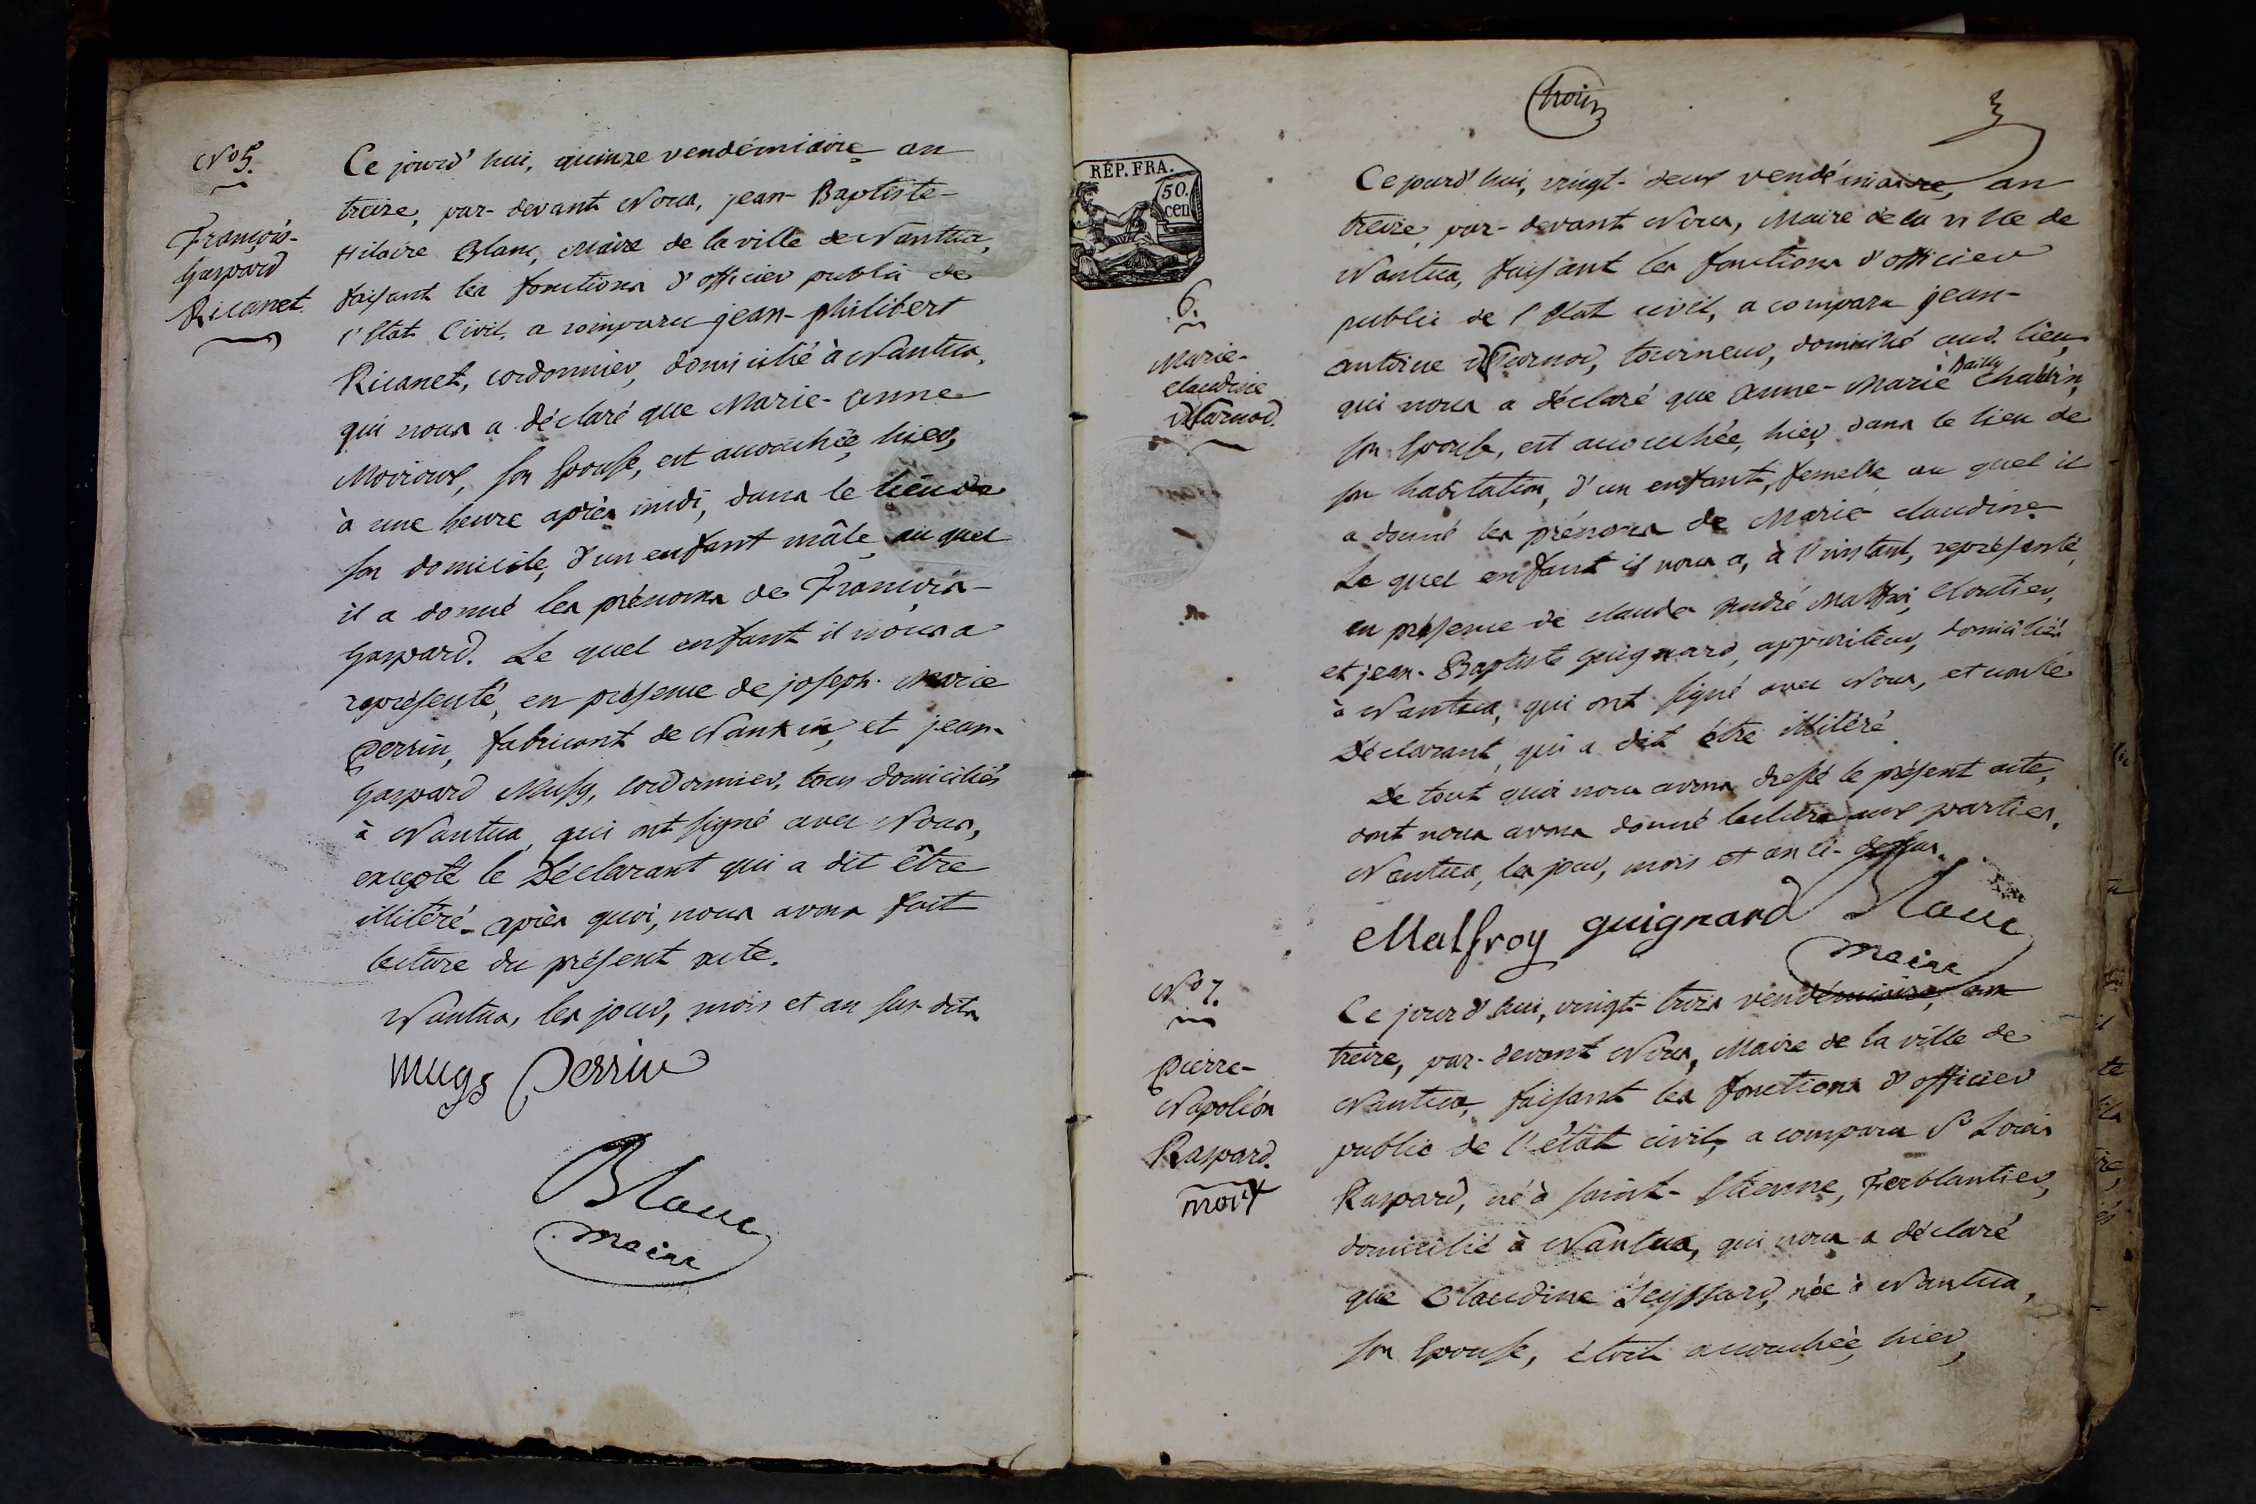 N.o 5.
François-
Gaspard
Ricanet.
Ce jourd'hui, quinze vendémiaire an
treize, par-devant Nous, jean-Baptiste-
Hilaire Blanc, Maire de la ville de Nantua,
faisant les fonctions d'officier public de
l'Etat Civil, a comparu jean-philibert
Ricanet, cordonnier, domicilié à Nantua,
qui nous a déclaré que Marie-anne
Moiroux, son Epouse, est accouchée, hier,
à une heure après midi, dans le lieu de
son domicile, d'un enfant mâle, au quel
il a donné les prénoms de François-
Gaspard. Le quel enfant il nous a
représenté, en présence de joseph-Marie
Perrin, fabricant de Nankin, et jean-
Gaspard Mugy, cordonnier, tous domiciliés
à Nantua, qui ont signé avec Nous,
excepté le Déclarant qui a dit être
illitéré. après quoi, nous avons fait
lecture du présent acte.
Nantua, les jour, mois et an sus-dits
Perrin
Blanc
maire
trois
3
RÉP. FRA.
50.
cen
6.
Marie-
claudine
Ce jourd'hui, vingt-deux vendémiaire, an
treize, par-devant Nous, Maire de la ville de
Nantua, faisant les fonctions d'officier
public de l'Etat civil, a comparu jean-
antoine tourneur, domicilié aud. lieu,
qui nous a déclaré que Anne-Marie Bailly
son Epouse, est accouchée, hier, dans le lieu de
son habitation, d'un enfant, femelle au quel il
a donné les prénoms de Marie-claudine
Le quel enfant il nous a, à l'instant, représenté,
en présence de claude André Malfroi, Cloutier,
et jean-Baptiste guignard, appariteur, domiciliés
à Nantua, qui ont signé avec Nous, et non le
Déclarant, qui a dit être illitéré.
De tout quoi nous avons dressé le présent acte,
dont nous avons donné lecture aux parties.
Nantua, les jour, mois et an ci-dessus.
Malfroy guignard Blanc
maire
N.o 7.
Pierre-
Napoléon
Raspard.
mort
Ce jourd'hui, vingt-trois vendémiaire, an
treize, par-devant Nous, Maire de la ville de
Nantua, faisant les fonctions d'officier
public de l'état civil, a comparu Sr Louis
Raspard, né à saint-Etienne, Ferblantier,
domicilié à Nantua, qui nous a déclaré
que Claudine Seyssard, née à Nantua,
son Epouse, étoit accouchée, hier,